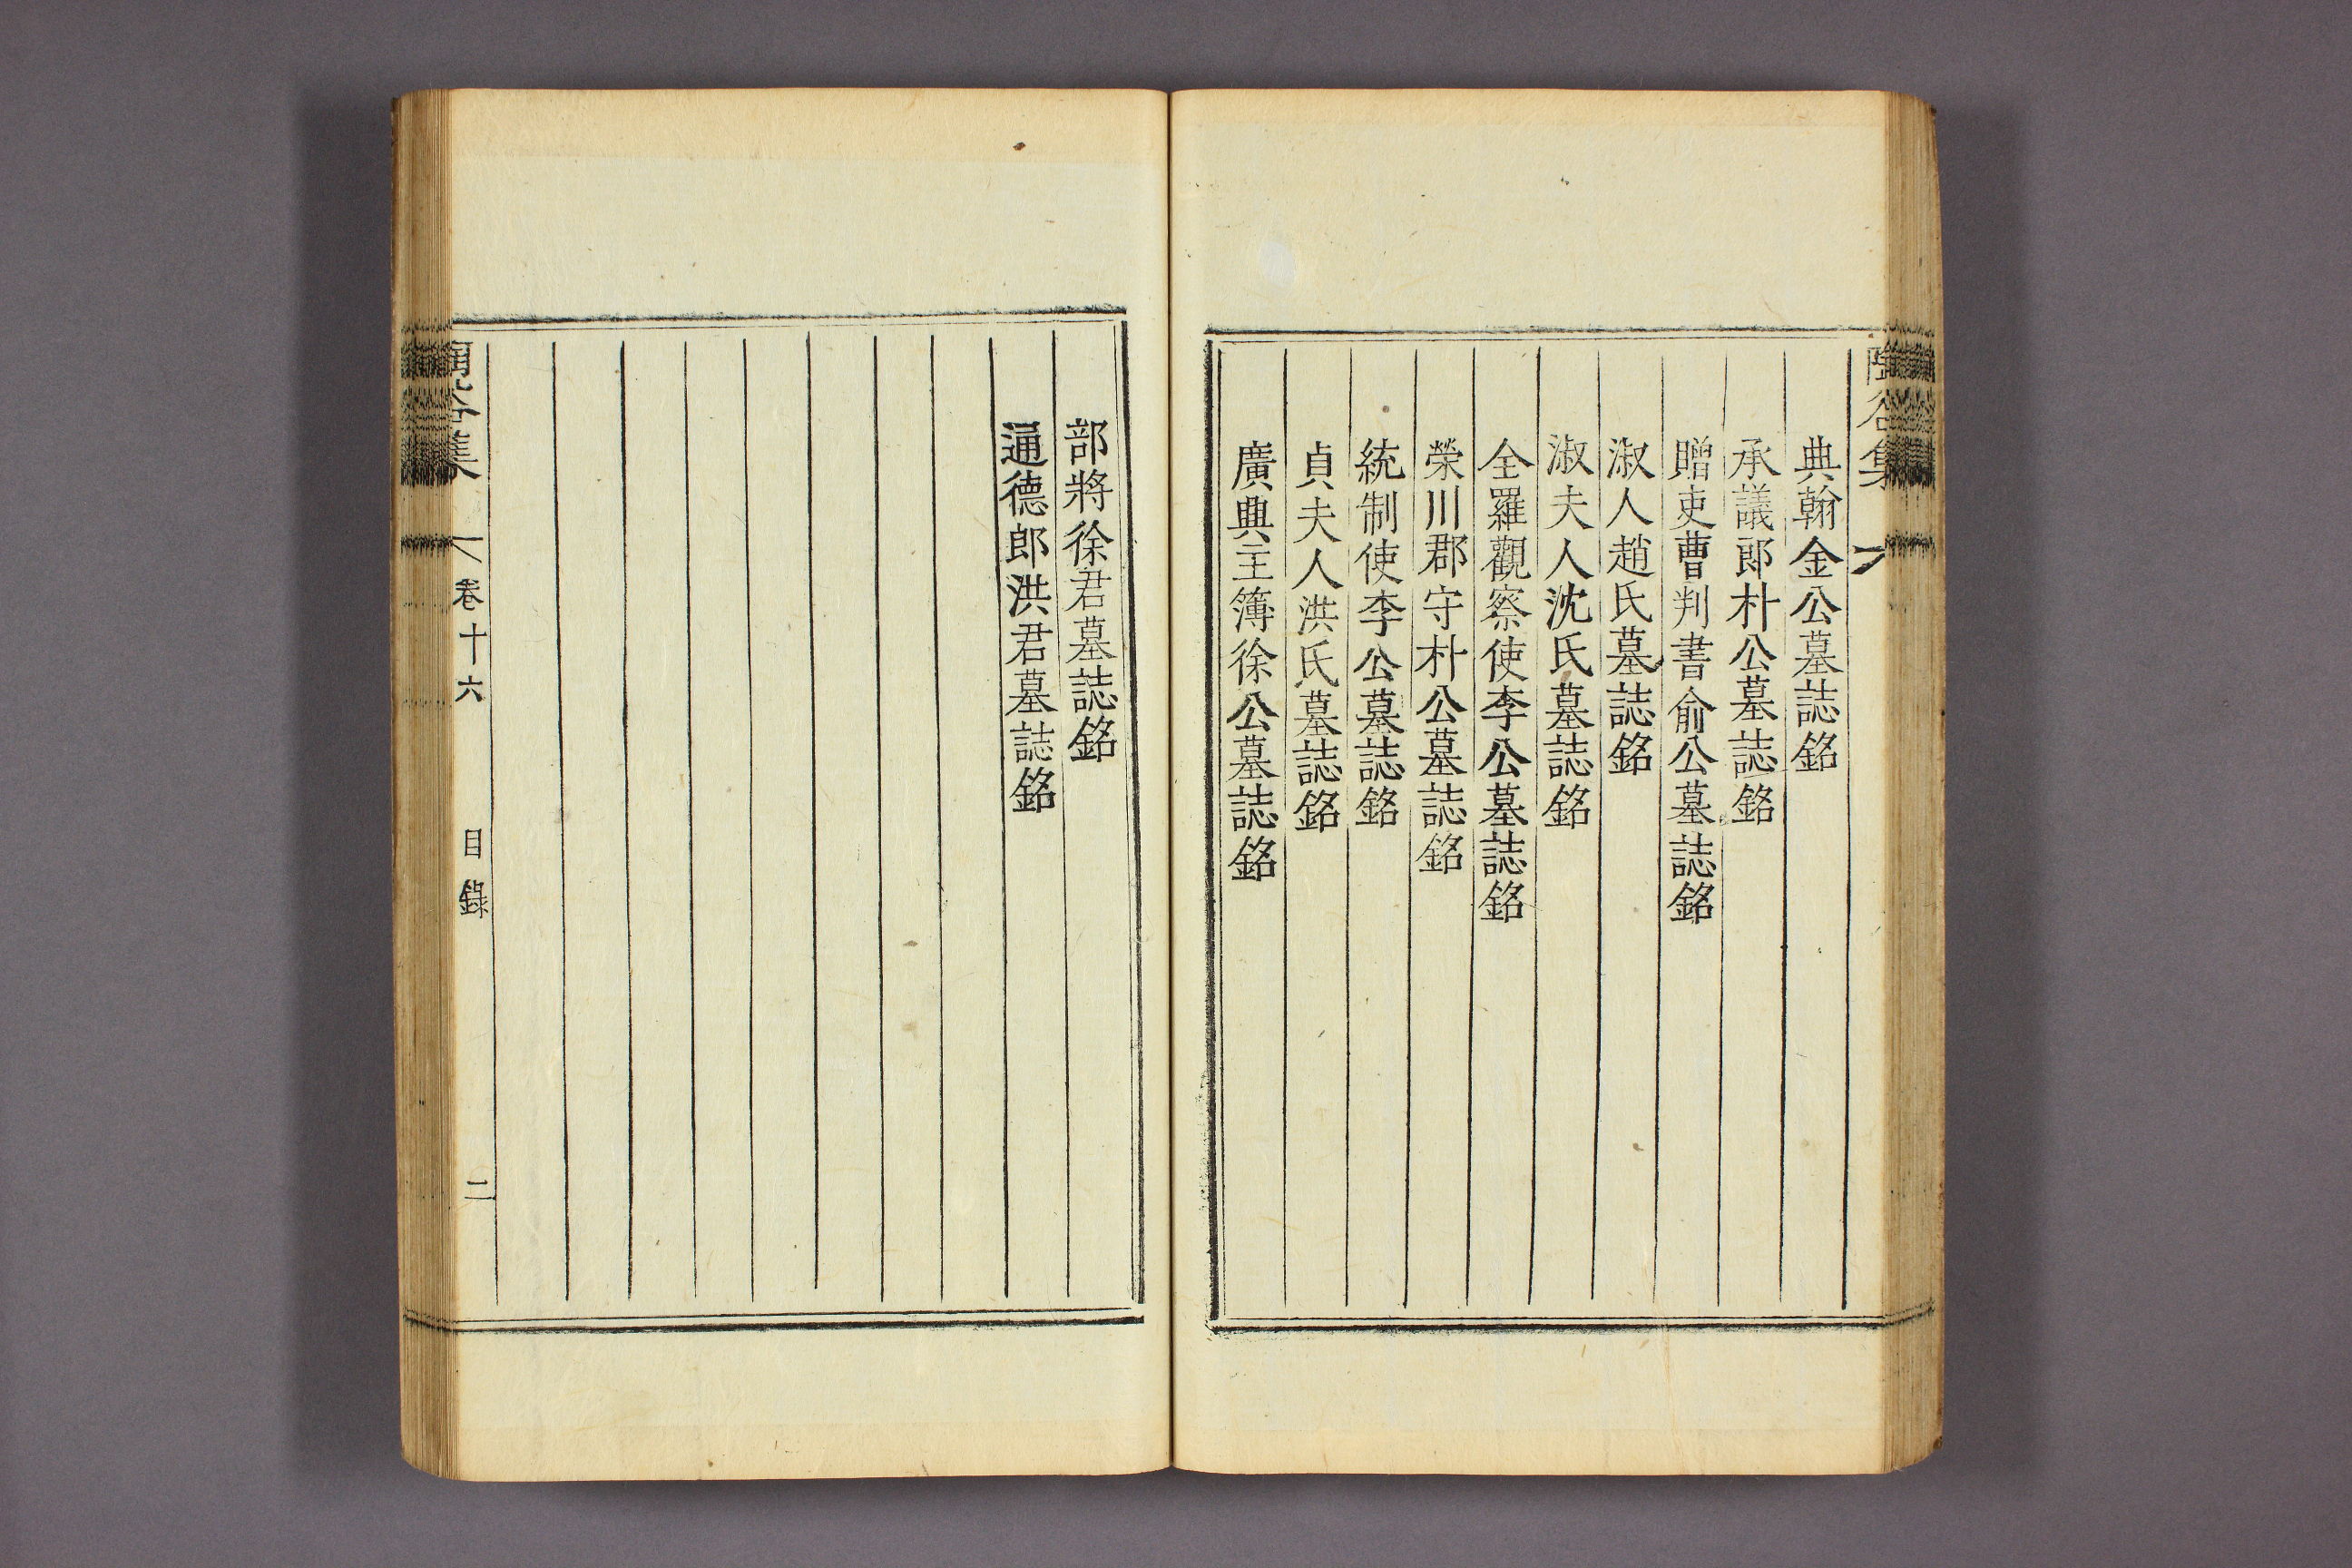 典翰金公墓誌銘
承議郎朴公墓誌銘
贈吏曹判書俞公墓誌銘
淑人趙氏墓誌銘
淑夫人沈氏墓誌銘
全羅觀察使李公墓誌銘
榮川郡守朴公墓誌銘
統制使李公墓誌銘
貞夫人洪氏墓誌銘
廣興主簿徐公墓誌銘
部將徐君墓誌銘
通德郎洪君墓誌銘
谷集
卷十六
目錄
二